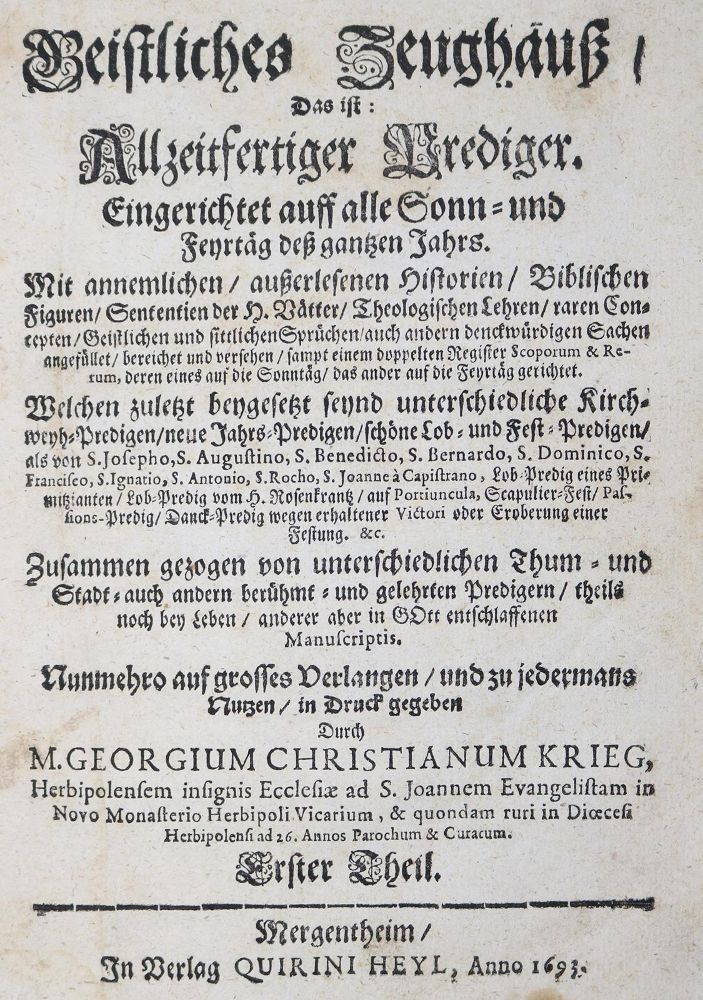 Geistliches Zeughäuß /
Das ist:
Allzeitfertiger Prediger.
Eingerichtet auff alle Sonn- und
Feyrtäg deß gantzen Jahrs.
Mit annemlichen / außerlesenen Historien / Biblischen
Figuren / Sententien der H. Vätter / Theologischen Lehren / raren Con-
cepten / Geistlichen und sittlichen Sprüchen / auch andern denckwürdigen Sachen
angefüllet / bereichet und versehen / sampt einem doppelten Register Scoporum & Re-
rum, deren eines auf die Sonntäg / das ander auf die Feyrtäg gerichtet.
Welchen zuletzt beygesetzt seynd unterschiedliche Kirch-
weyh-Predigen / neue Jahrs-Predigen / schöne Lob- und Fest-Predigen /
als von S. Josepho, S. Augustino, S. Benedicto, S. Bernardo, S. Dominico, S.
Francisco, S. Ignatio, S. Antonio, S. Rocho, S. Joanne à Capistrano, Lob-Predig eines Pri-
mitzianten / Lob-Predig vom H. Rosenkrantz / auf Portiuncula, Scapulier-Fest / Pas-
sions-Predig / Danck-Predig wegen erhaltener Victori oder Eroberung einer
Festung. &c.
Zusammen gezogen von unterschiedlichen Thum- und
Stadt- auch andern berühmt- und gelehrten Predigern / theils
noch bey Leben / anderer aber in GOtt entschlaffenen
Manuscriptis.
Nunmehro auf grosses Verlangen / und zu jedermans
Nutzen / in Druck gegeben
Durch
M. GEORGIUM CHRISTIANUM KRIEG,
Herbipolensem insignis Ecclesiæ ad S. Joannem Evangelistam in
Novo Monasterio Herbipoli Vicarium, & quondam ruri in Diœcesi
Herbipolensi ad 26. Annos Parochum & Curacum.
Erster Theil.
Mergentheim /
In Verlag QUIRINI HEYL, Anno 1693.